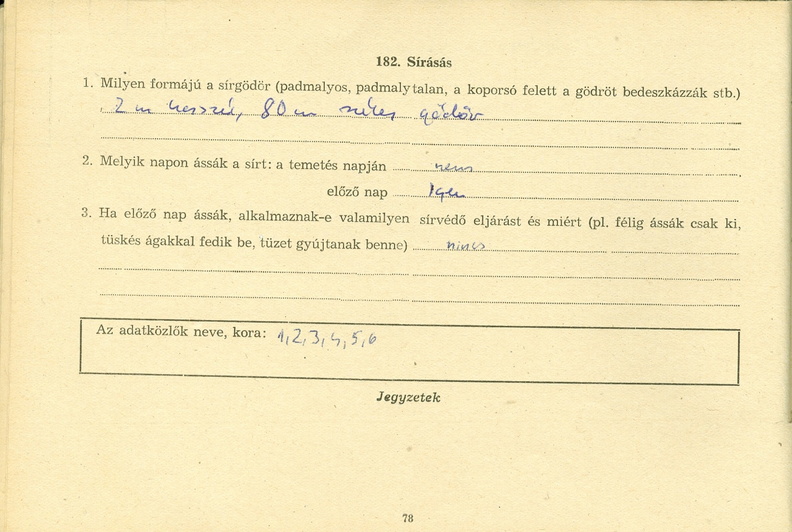 182. Sírásás
1. Milyen formájú a sírgödör (padmalyos, padmalytalan, a koporsó felett a gödröt bedeszkázzák stb.)
2 m hosszú, 80 cm széles gödör
2. Melyik napon ássák a sírt: a temetés napján nem
előző nap Igen
3. Ha előző nap ássák, alkalmaznak-e valamilyen sírvédő eljárást és miért (pl. félig ássák csak ki,
tüskés ágakkal fedik be, tüzet gyújtanak benne) nincs
Az adatközlők neve, kora: 1,2,3,4,5,6
Jegyzetek
78